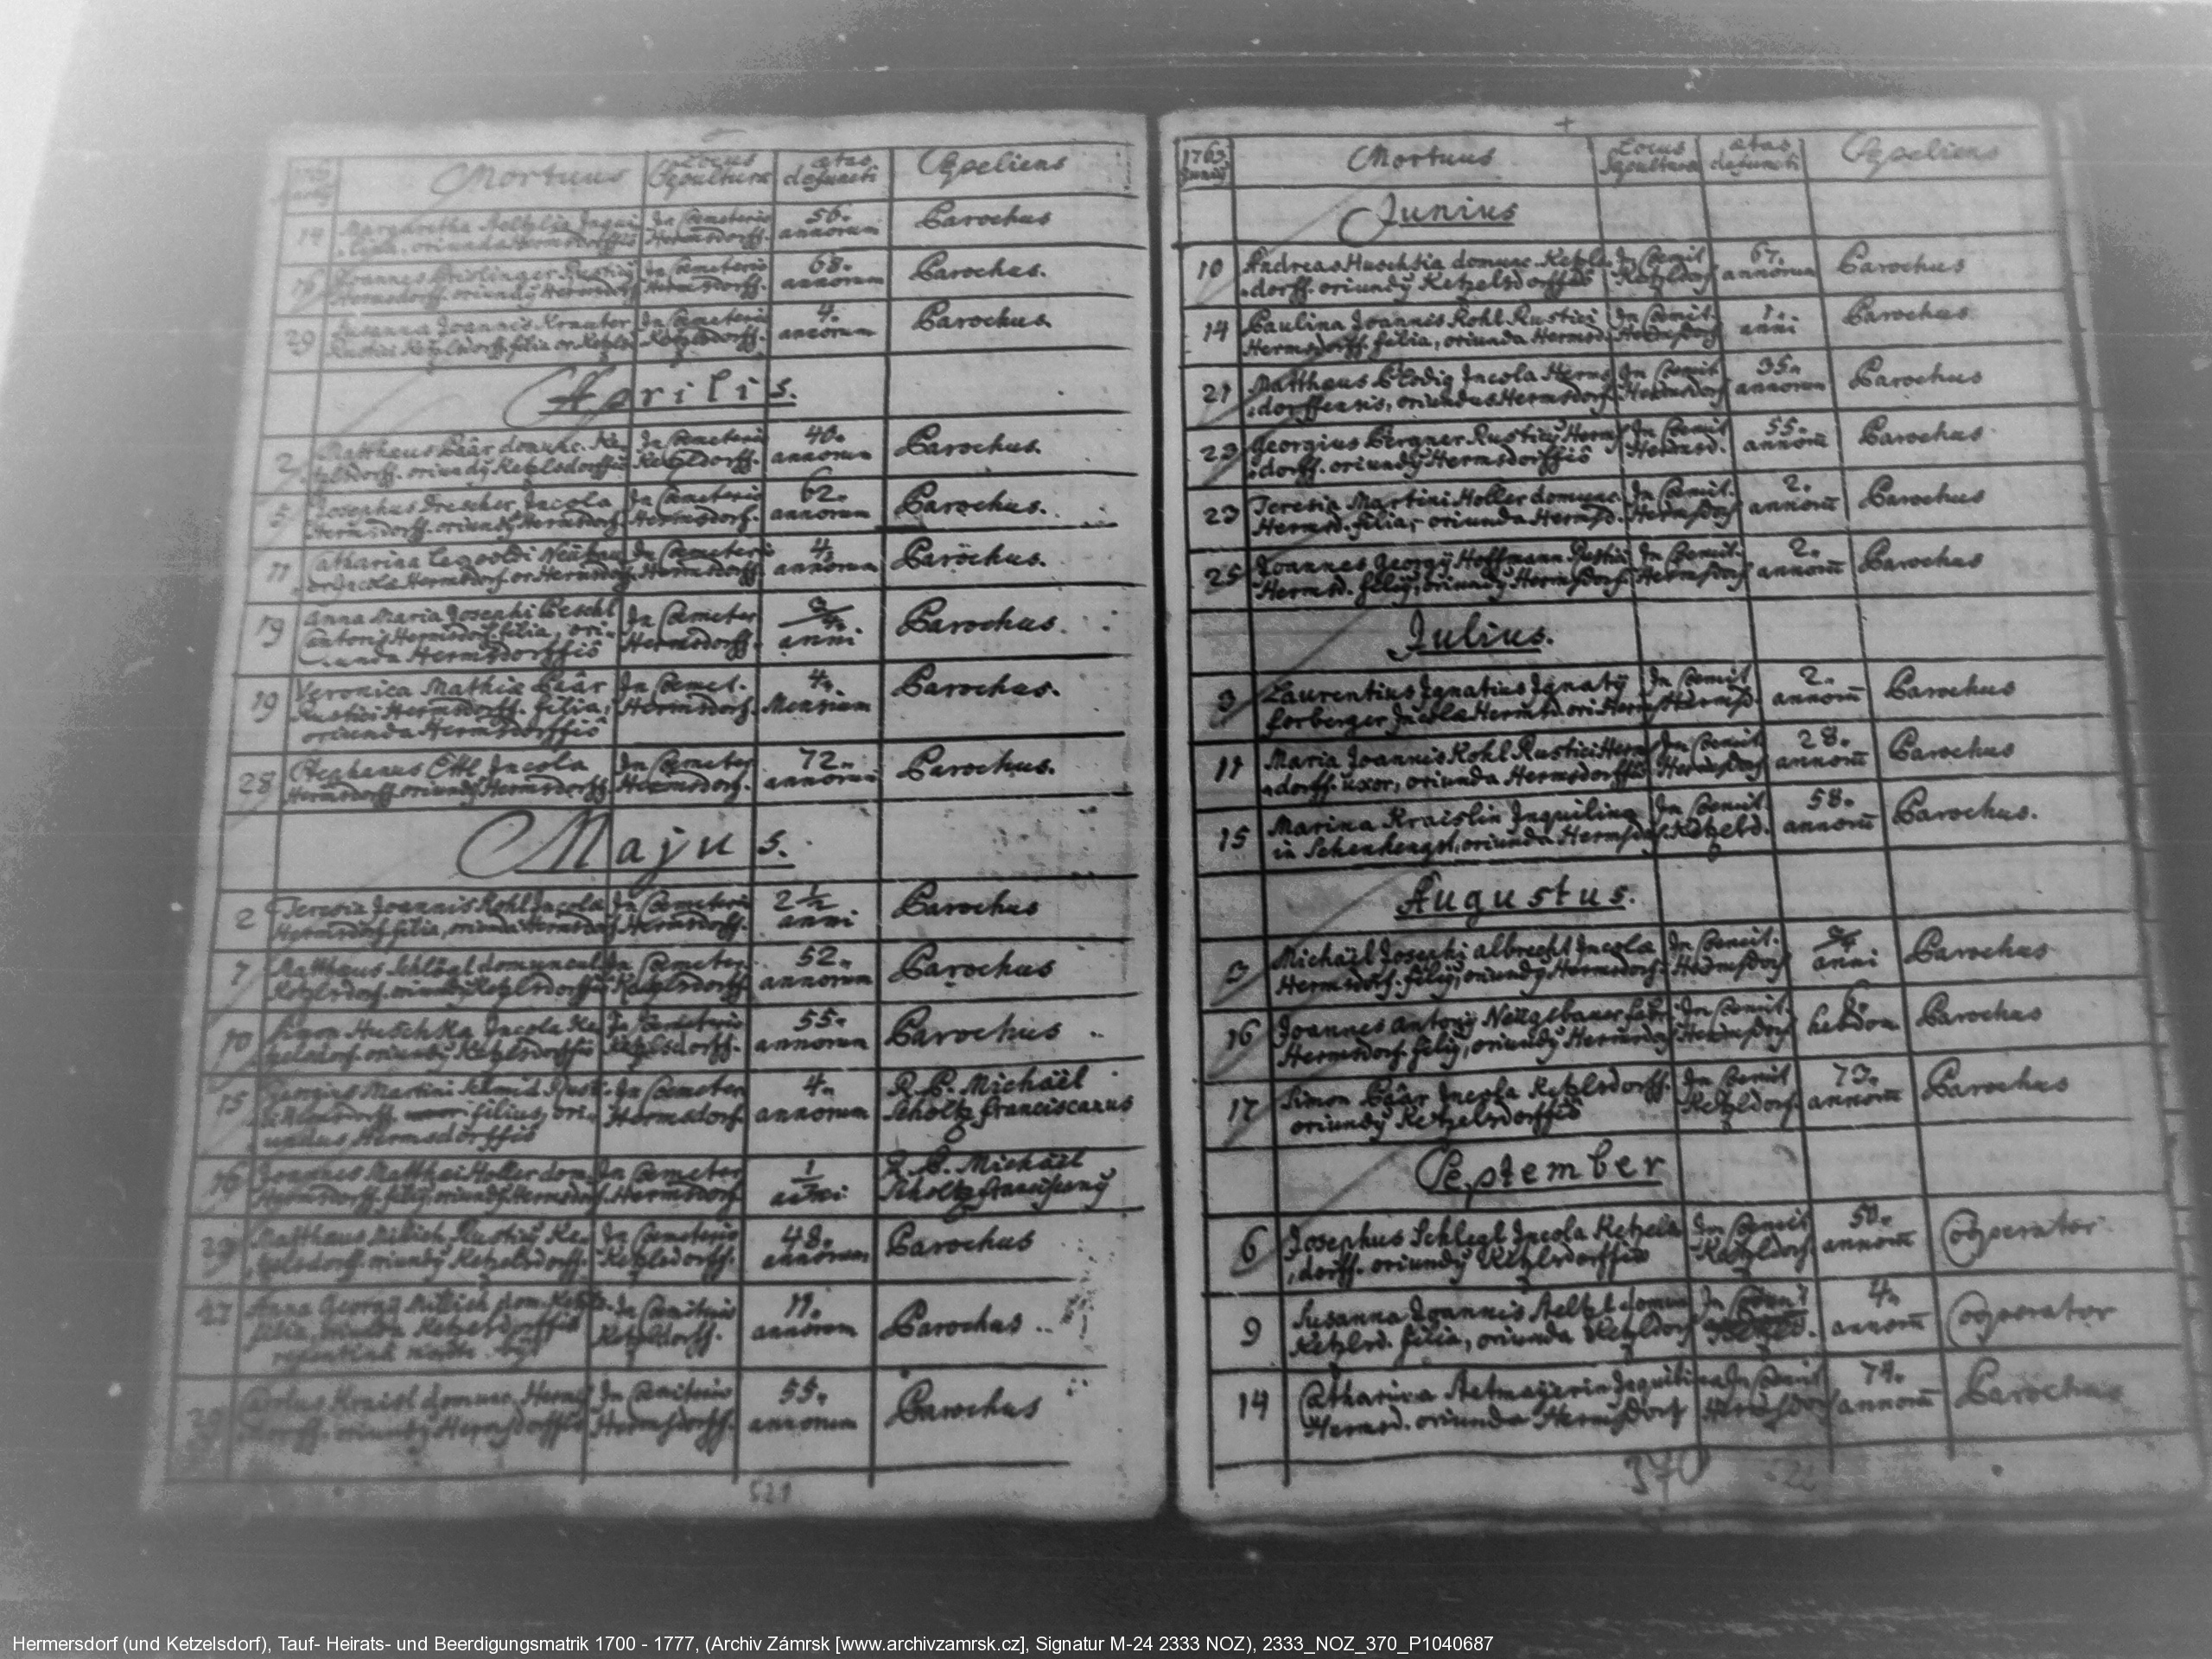 Mortuus Locus Sepulturæ ætas defuncti Sepeliens
14 Margaretha Inqui
lina. oriunda Hermsdorffiÿ In Cæmeterio Hermsdorff. 56. annorum Parochus
16 Joannes Rusticÿ
Hermsdorff. oriundÿ Hermsdorff In Cæmeterio Hermsdorff. 68. annorum Parochus.
29 Susanna Joannis Krauter
Rustici Ketzlsdorff. filia or. Ketzls In Cæmeterio Ketzlsdorff. 4. annorum Parochus.
Aprilis.
2 Matthæus Baâr domunc. Ke
tzlsdorff. oriundÿ Ketzlsdorffiÿ In Cæmeterio Ketzlsdorff. 40. annorum Parochus.
5 Josephus Drescher Incola
Hermsdorff. oriundÿ Hermsdorf. In Cæmeterio Hermsdorf. 62. annorum Parochus.
11 Catharina Leopoldi Neübau
er Incola Hermsdorf. or Hermsdorf. In Cæmeterio Hermsdorff. 4. annorum Parochus.
19 Anna Maria Josephi Peschl
Hermsdorf. filia, ori-
unda Hermsdorffiô In Cæmeter Hermsdorff. 3/4 anni Parochus.
19 Veronica Mathiæ Baâr
Rustici Hermsdorff. filia,
oriunda Hermsdorffiô In Cæmet. Hermsdorf. 4. Mensium Parochus.
28 Stephanus Ettl Incola
Hermsdorff oriundÿ Hermsdorff In Cæmeter Hermsdorf. 72. annorum Parochus.
Majus.
2 Teresia Joannis Kohl Incola
Hermsdorf filia, oriunda Hermsdorf In Cæmeterio Hermsdorff. 2 1/2 anni Parochus
7 Matthæus Schlögl domuncul
Ketzlsdorf. oriundÿ Ketzlsdorffiÿ In Cæmeter. Ketzlsdorff 52. annorum Parochus
10 Huschka Incola Ke
tzelsdorf. oriundÿ Ketzlsdorffiô In Cæmeterio Ketzlsdorff. 55. annorum Parochus
15 Georgius Martini Schmid Rust.
Hermsdorff. filius, ori-
undus Hermsdorffiô In Cæmeter Hermsdorf. 4. annorum R. P. Michäel
Scholtz Franciscanus
16 Joannes Matthæi Holler dom.
Hermsdorff. filiÿ, oriundÿ Hermsdorf. In Cæmeter Hermsdorf 1 R. P. Michäel
Scholtz Franciscanÿ
Matthæus Rusticÿ Ke
tzelsdorff. oriundÿ Ketzelsdorff. In Cæmeterio Ketzlsdorff. 48. annorum Parochus
27 Anna Georgÿ Mittich dom. Ketzls.
filia, oriunda Ketzelsdorffiô
repentina morte In Cæmiterio Ketzldorff. 11. annorum Parochus
29 Carolus Kraisl domunc. Herms
dorff. oriundÿ Hermsdorffiô In Cæmiterio Hermsdorff. 55. annorum Parochus
521
1763 Junÿ Mortuus Locus Sepulturæ ætas defuncti Sepeliens
Junius
10 Andreas Huschka domunc. Ketzls
dorff. oriundÿ Ketzelsdorffiô In Cæmit Ketzldorf 67. annorum Parochus
14 Paulina Joannis Kohl Rustici
Hermsdorff. filia, oriunda Hermsd. In Cæmit. Hermsdorf 1. anni Parochus
21 Matthæus Plodig Incola Herms
dorffensis, oriundus Hermsdorf. In Cæmit Hermsdorf 35. annorum Parochus
23 Georgius Bergner Rusticÿ Herms
dorff. oriundÿ Hermsdorffiô In Cæmit Hermsd. 55. annorū Parochus
23 Teresia Martini Holler domunc.
Hermsd. filia, oriunda Hermsd. In Cæmit. Hermsdorf 2. annorū Parochus
25 Joannes Georgÿ Hoffmann Rustici
Hermsd. filiÿ, oriundÿ Hermsdorf. In Cæmit. Hermsdorf 2. annorū Parochus
Julius.
3 Laurentius Ignatius Ignatÿ
Forberger Incola Hermsd. ori Herms In Cæmit Hermsd. 2. annorū Parochus
11 Maria Joannis Kohl Rustici Herms
dorff. uxor, oriunda Hermsdorffiô In Cæmit Hermsdorf 28. annorū Parochus
15 Marina Kraislin Inquilina
in Schenhengst, oriunda Hermsdorf. In Cæmit. Ketzelsd. 58. annorū Parochus.
Augustus.
3 Michäel Josephi Albrecht Incola
Hermsdorf. filiÿ, oriundÿ Hermsdorf. In Cæmit. Hermsdorf 3/4 anni Parochus
16 Joannes Antonÿ Neügebauer
Hermsdorf. filiÿ, oriundÿ Hermsdorf In Cæmit. Hermsdorf 6. hebdom Parochus
17 Simon Baâr Incola Ketzlsdorff.
oriundÿ Ketzelsdorffiô In Cæmit Ketzldorf. 73. annorū Parochus
September
6 Josephus Schlegl Incola Ketzels
dorff. oriundÿ Ketzlsdorffiô In Cæmit Ketzldorf. 50. annorū Cooperator
9 Susanna Joannis Aeltzl domun
Ketzlsd. filia, oriunda Ketzldorf In Cæmit Ketzlsd. 4. annorū Cooperator
14 Catharina Inquilina
Hermsd. oriunda Hermsdorf In Cæmit Hermsdorf 74. annorū Parochus
370
Hermersdorf (und Ketzelsdorf), Tauf- Heirats- und Beerdigungsmatrik 1700 - 1777, (Archiv Zámrsk [www.archivzamrsk.cz], Signatur M-24 2333 NOZ), 2333_NOZ_370_P1040687